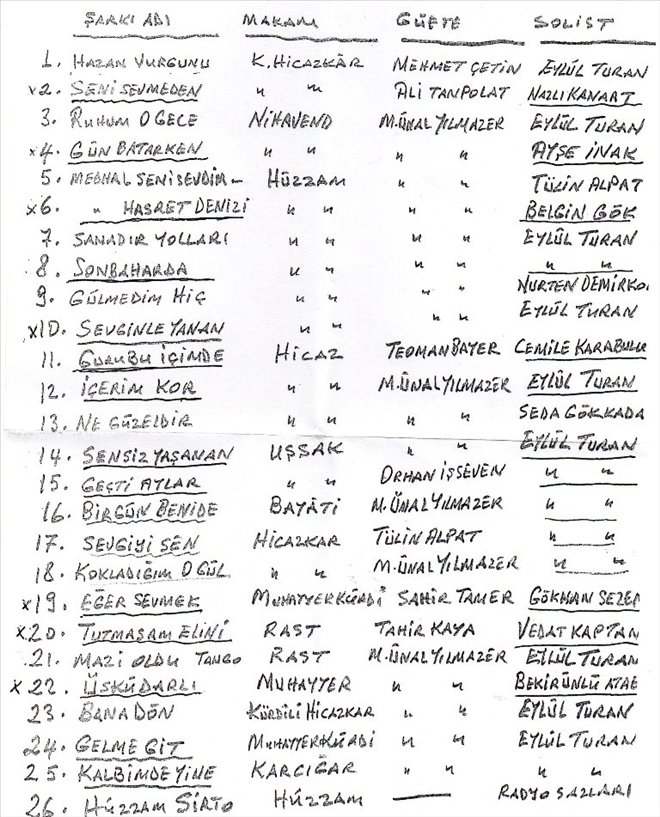 ŞARKI ADI MAKAM GÜFTE SOLİST
1. HAZAN VURGUNU K. HİCAZKÂR MEHMET ÇETİN EYLÜL TURAN
x2. SENİ SEVMEDEN " " ALİ TANPOLAT NAZLI KANAAT
3. RUHUM O GECE NİHAVEND M.ÜNAL YILMAZER EYLÜL TURAN
x4. GÜN BATARKEN " " " " AYŞE İNAK
5. MEDHAL SENİ SEVDİM - HÜZZAM " " TÜLİN ALPAT
x6. " HASRET DENİZİ " " " " BELGİN GÖK
7. SANADIR YOLLARI " " " " EYLÜL TURAN
8. SONBAHARDA " " " " " "
9. GÜLMEDİM HİÇ " " " " NURTEN DEMİRKOL
x10. SEVGİNLE YANAN " " " " EYLÜL TURAN
11. GURUBU İÇİMDE HİCAZ TEOMAN BAYER CEMİLE KARABULU
12. İÇERİM KOR " " M.ÜNAL YILMAZER EYLÜL TURAN
13. NE GÜZELDİR " " " " SEDA GÖKKADA
14. SENSİZ YAŞANAN UŞŞAK " " EYLÜL TURAN
15. GEÇTİ AYLAR " " ORHAN İŞSEVEN " "
16. BİRGÜN BENİDE BAYÂTİ M.ÜNAL YILMAZER " "
17. SEVGİYİ SEN HİCAZKAR TÜLİN ALPAT " "
18. KOKLADIĞIM O GÜL " " M.ÜNAL YILMAZER " "
x19. EĞER SEVMEK MUHAYYERKÜRDİ SAHİR TAMER GÖKHAN SEZER
x20. TUTMASAM ELİNİ RAST TAHİR KAYA VEDAT KAPTAN
21. MAZİ OLDU TANGO RAST M.ÜNAL YILMAZER EYLÜL TURAN
x22. ÜSKÜDARLI MUHAYYER " " BEKİR ÜNLÜ ATAE
23. BANA DÖN KÜRDİLİ HİCAZKAR " " EYLÜL TURAN
24. GELME GİT MUHAYYERKÜRDİ " " EYLÜL TURAN
25. KALBİMDE YİNE KARCIĞAR " " " "
26. HÜZZAM SİRTO HÜZZAM — RADYO SAZLARI